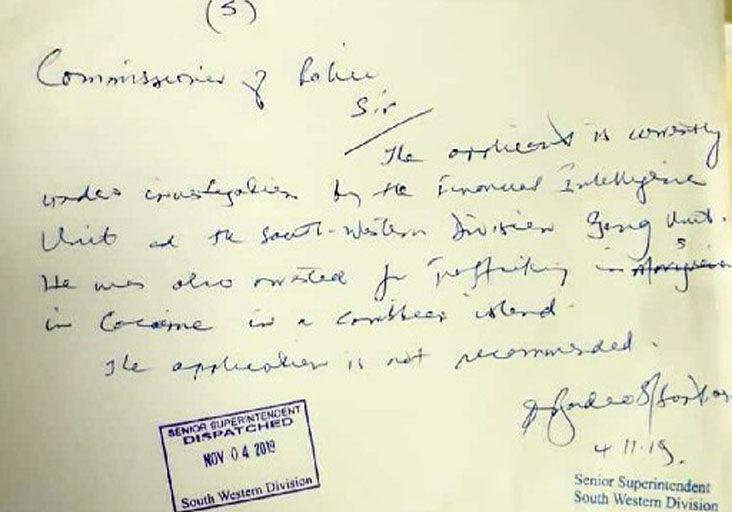 (5)
Commissioner of Police
Sir
The applicant is currently
under investigation by the Financial Intelligence
Unit and the South-Western Division Gang Unit.
He was also arrested for Trafficking in
in Cocaine in a Caribbean island.
The application is not recommended.
4.11.19.
SENIOR SUPERINTENDENT
DISPATCHED
NOV 04 2019
South Western Division
Senior Superintendent
South Western Division